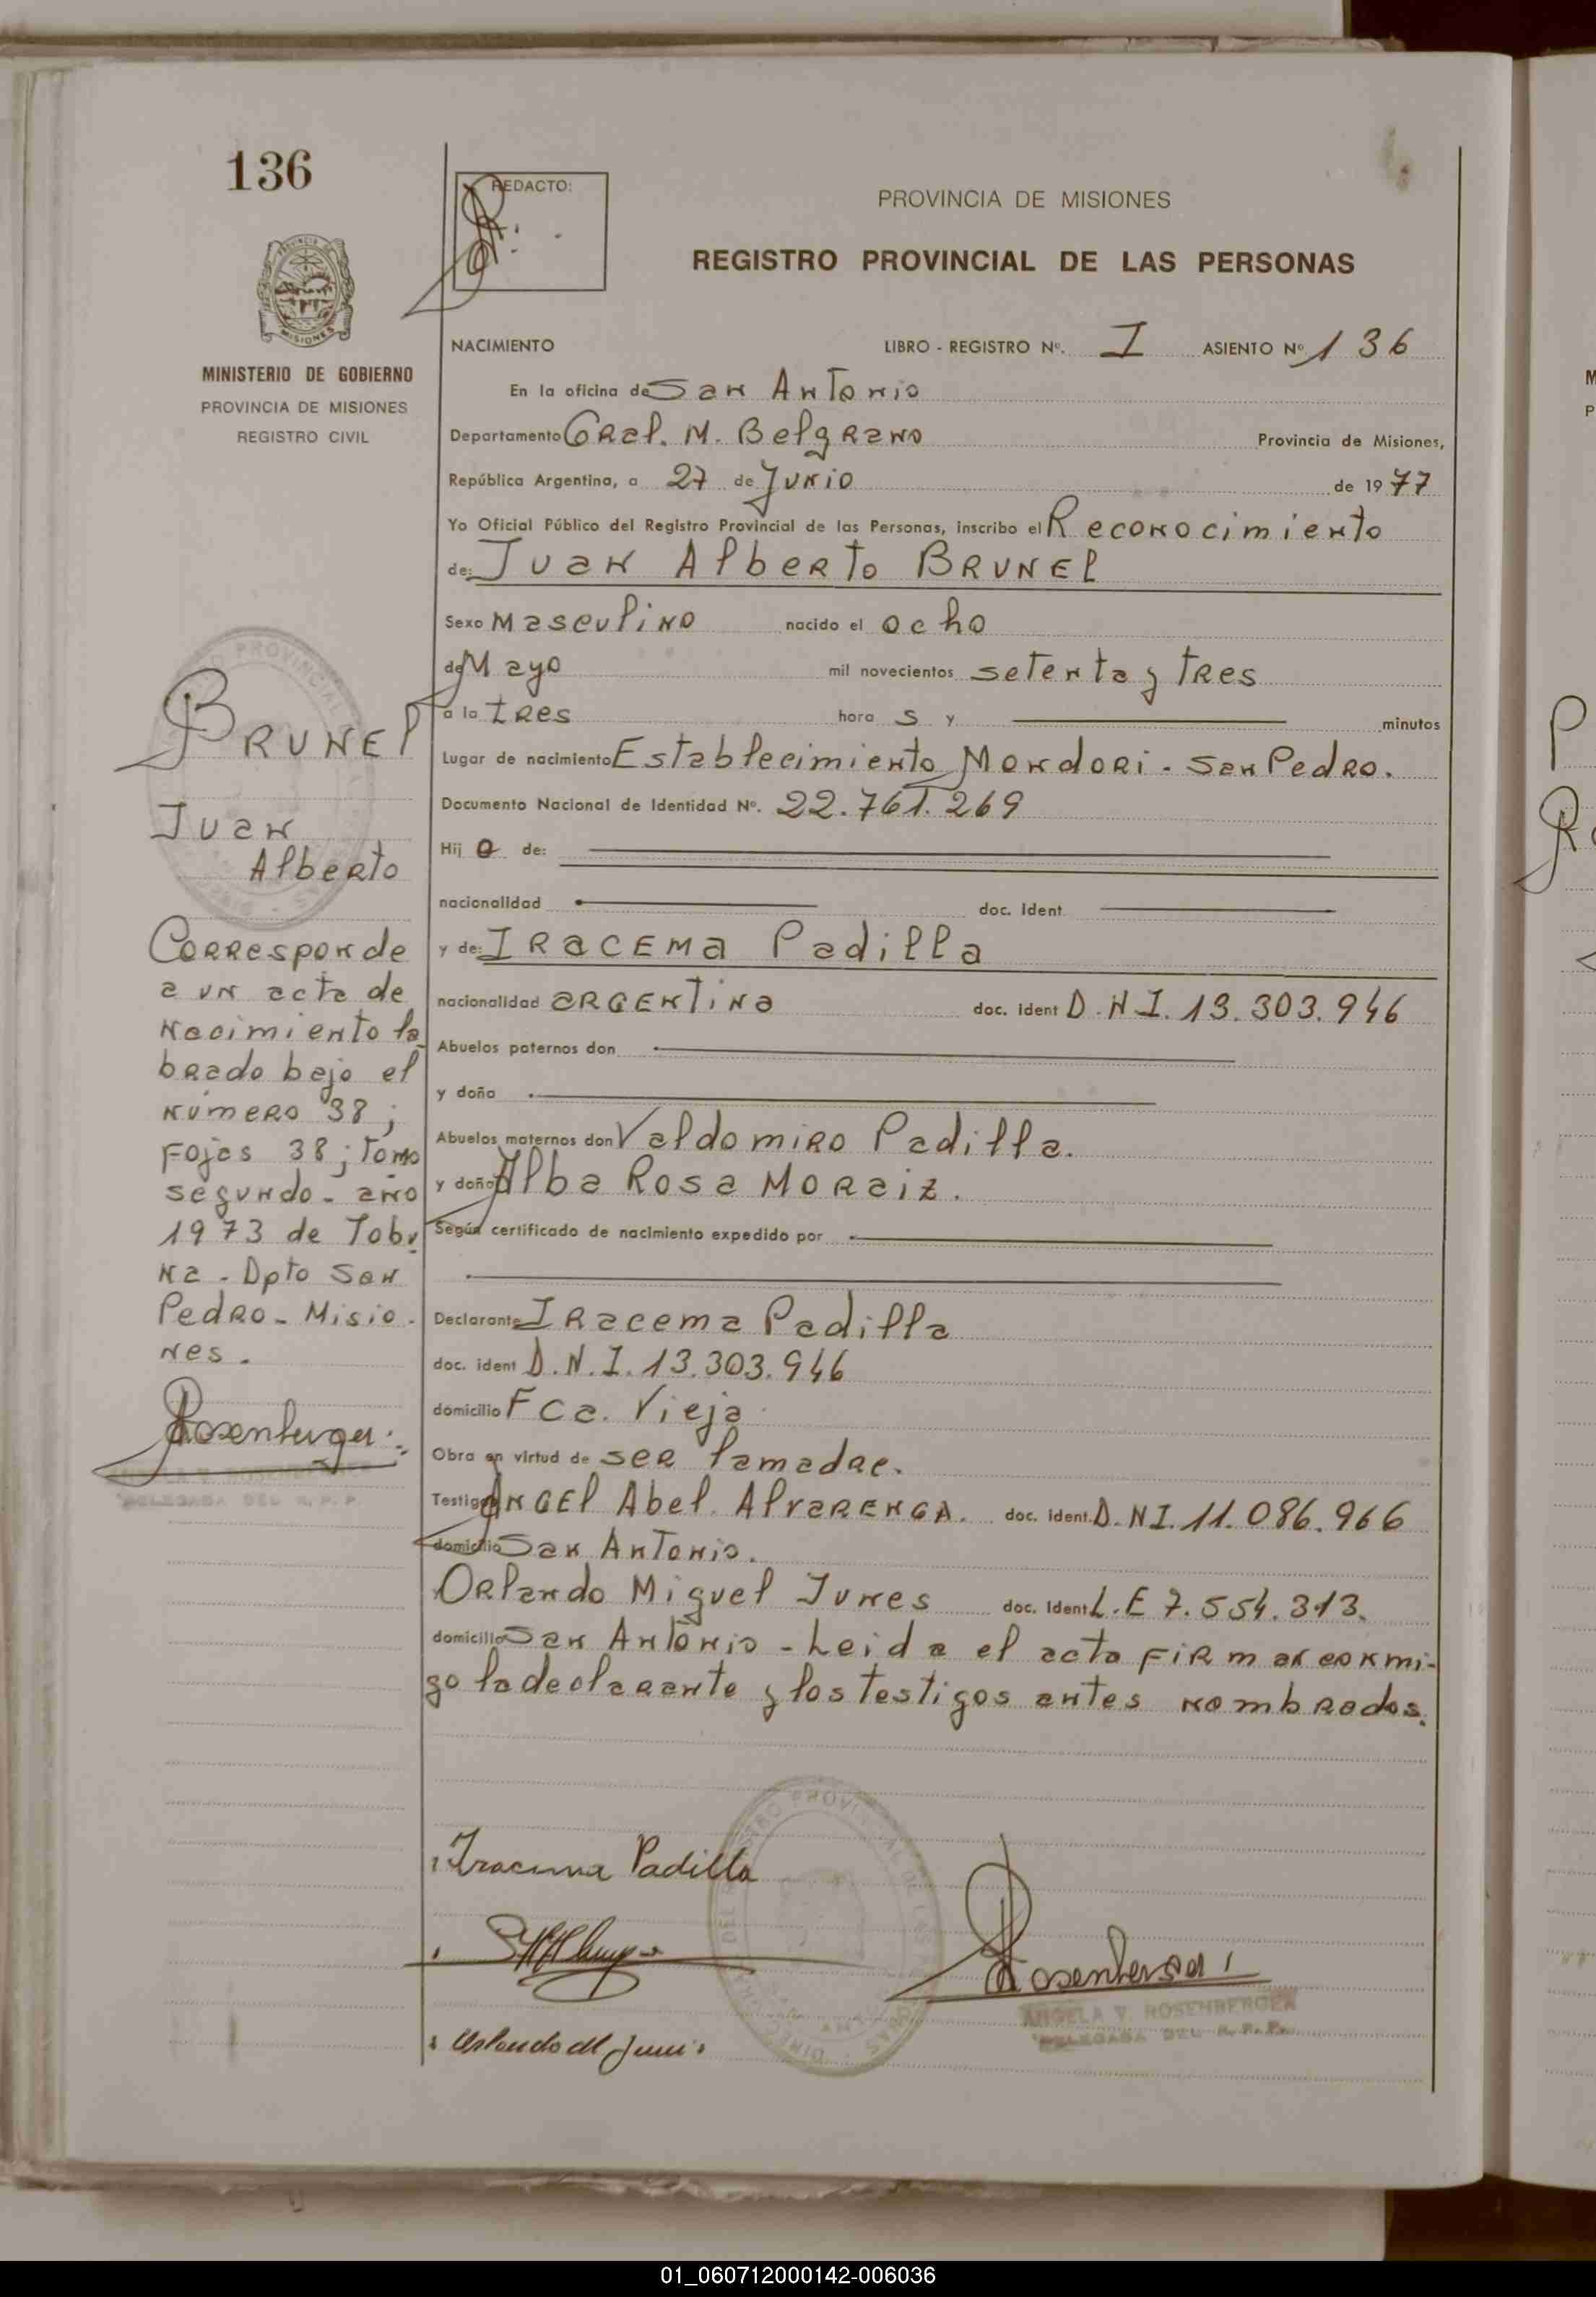 136
REDACTO:
PROVINCIA DE MISIONES
REGISTRO PROVINCIAL DE LAS PERSONAS
MISIONES
MINISTERIO DE GOBIERNO
PROVINCIA DE MISIONES
REGISTRO CIVIL
NACIMIENTO LIBRO - REGISTRO Nº. I ASIENTO Nº 136
En la oficina de San Antonio
Departamento Gral. M. Belgrano Provincia de Misiones,
República Argentina, a 27 de Junio de 1977
Yo Oficial Público del Registro Provincial de las Personas, inscribo el Reconocimiento
de: Juan Alberto BRUNEL
Sexo Masculino nacido el ocho
de Mayo mil novecientos setenta y tres
a la tres hora s y minutos
Lugar de nacimiento Establecimiento Mondori - San Pedro.
Documento Nacional de Identidad Nº. 22.761.269
Hij o de:
nacionalidad doc. Ident
y de: IRACEMA Padilla
nacionalidad argentina doc. ident D.N.I. 13.303.946
Abuelos paternos don
y doña
Abuelos maternos don Valdomiro Padilla.
y doña Alba Rosa Moraiz.
Según certificado de nacimiento expedido por
Declarante Iracema Padilla
doc. ident D.N.I. 13.303.946
domicilio Fca. Vieja
Obra en virtud de ser lamadre.
Testigos Angel Abel Alvarenga. doc. ident. D.N.I. 11.086.966
domicilio San Antonio.
Orlando Miguel Junes doc. Ident L.E 7.554.313.
domicilio San Antonio - Leida el acta firman conmi-
go la declarante y los testigos antes nombrados.
BRUNEL
Juan
Alberto
Corresponde
a un acta de
nacimiento la
brado bajo el
número 38;
Fojas 38; tomo
segundo - año
1973 de Tobu
na - Dpto San
Pedro - Misio-
nes.
Rosenberger
DELEGADA DEL R. P. P.
Iracema Padilla
Rosenberger
ANGELA V. ROSENBERGER
DELEGADA DEL R. P. P.
Orlando M Junes
01_060712000142-006036